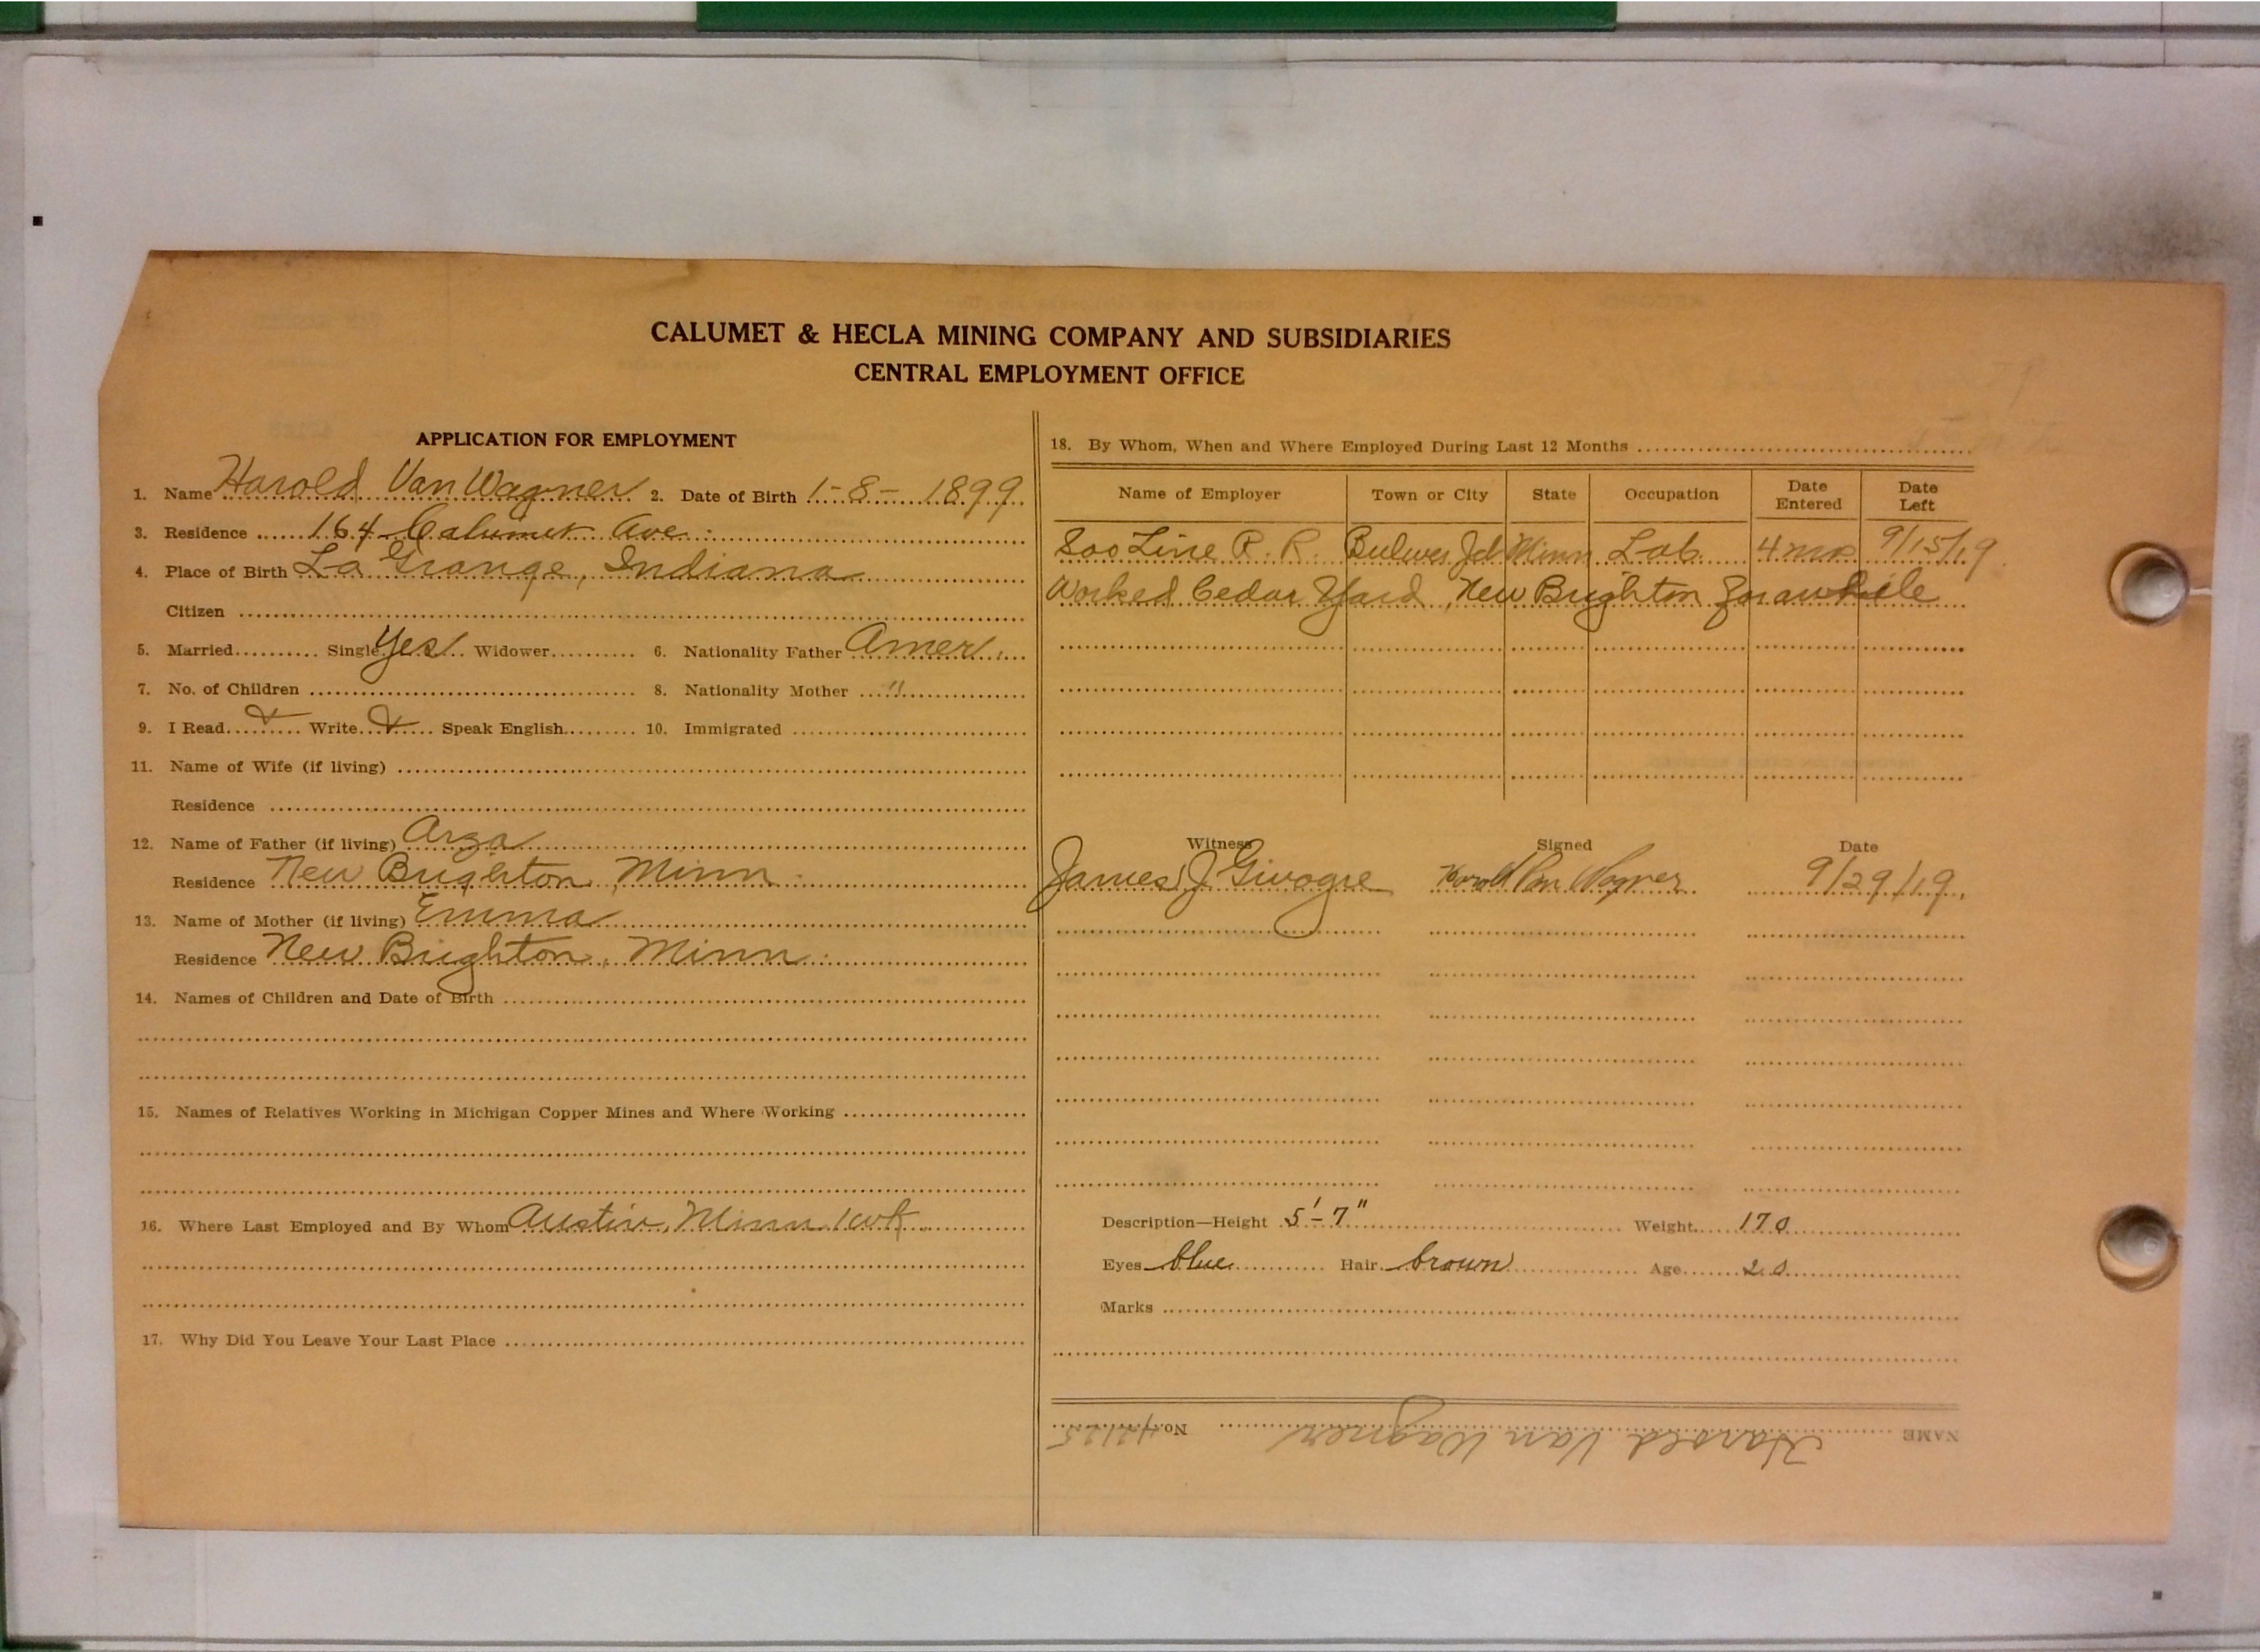 CALUMET & HECLA MINING COMPANY AND SUBSIDIARIES
CENTRAL EMPLOYMENT OFFICE
APPLICATION FOR EMPLOYMENT
1. Name Harold Van Wagner 2. Date of Birth 1-8-1899
3. Residence 164 Calumet Ave.
4. Place of Birth La Grange, Indiana
Citizen
5. Married Single Yes Widower 6. Nationality Father Amer.
7. No. of Children 8. Nationality Mother "
9. I Read Write Speak English 10. Immigrated
11. Name of Wife (if living)
Residence
12. Name of Father (if living) Arza
Residence New Brighton, Minn.
13. Name of Mother (if living) Emma
Residence New Brighton, Minn.
14. Names of Children and Date of Birth
15. Names of Relatives Working in Michigan Copper Mines and Where Working
16. Where Last Employed and By Whom Austin, Minn. 1 wk.
17. Why Did You Leave Your Last Place
18. By Whom, When and Where Employed During Last 12 Months
Name of Employer Town or City State Occupation Date Entered Date Left
Soo Line R. R. Minn Lab. 4 mos 9/15/19
Worked Cedar Yard, New Brighton for awhile
Witness Signed Date
James J Harold Van Wagner 9/29/19.
Description—Height 5'-7" Weight 170
Eyes blue Hair brown Age 20
Marks
NAME Harold Van Wagner No.